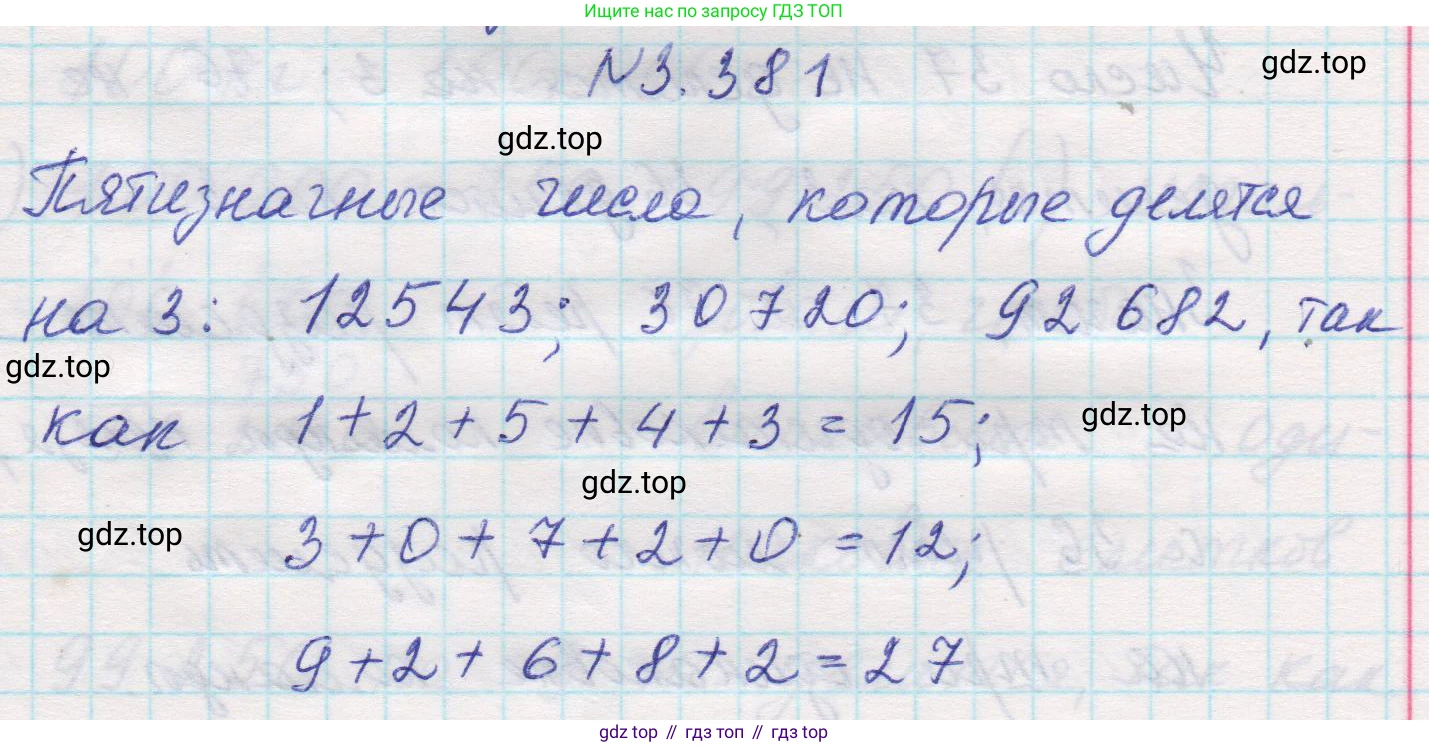 Ищите нас по запросу ГДЗ ТОП
N3.381
gdz.top
gdz.top
Пятизначные числа, которые делятся
на 3: 12543; 30720; 92682, так
gdz.top
как 1+2+5+4+3=15;
gdz.top
gdz.top
gdz.top
3+0+7+2+0=12;
9+2+6+8+2=27
gdz top // гдз топ // гдз top